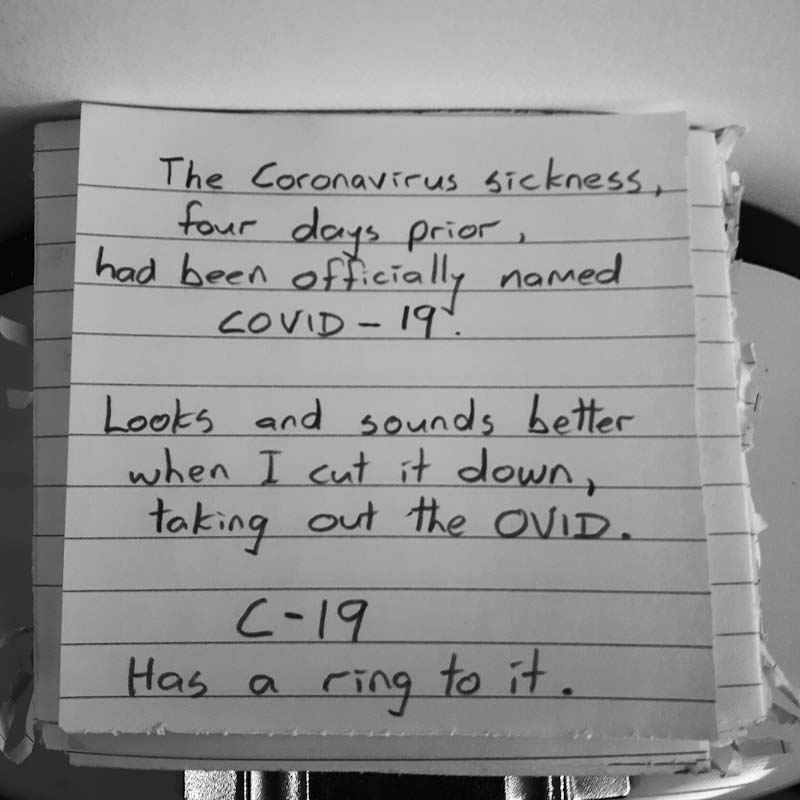 The Coronavirus sickness,
four days prior,
had been officially named
COVID - 19.
Looks and sounds better
when I cut it down,
taking out the OVID.
C-19
Has a ring to it.